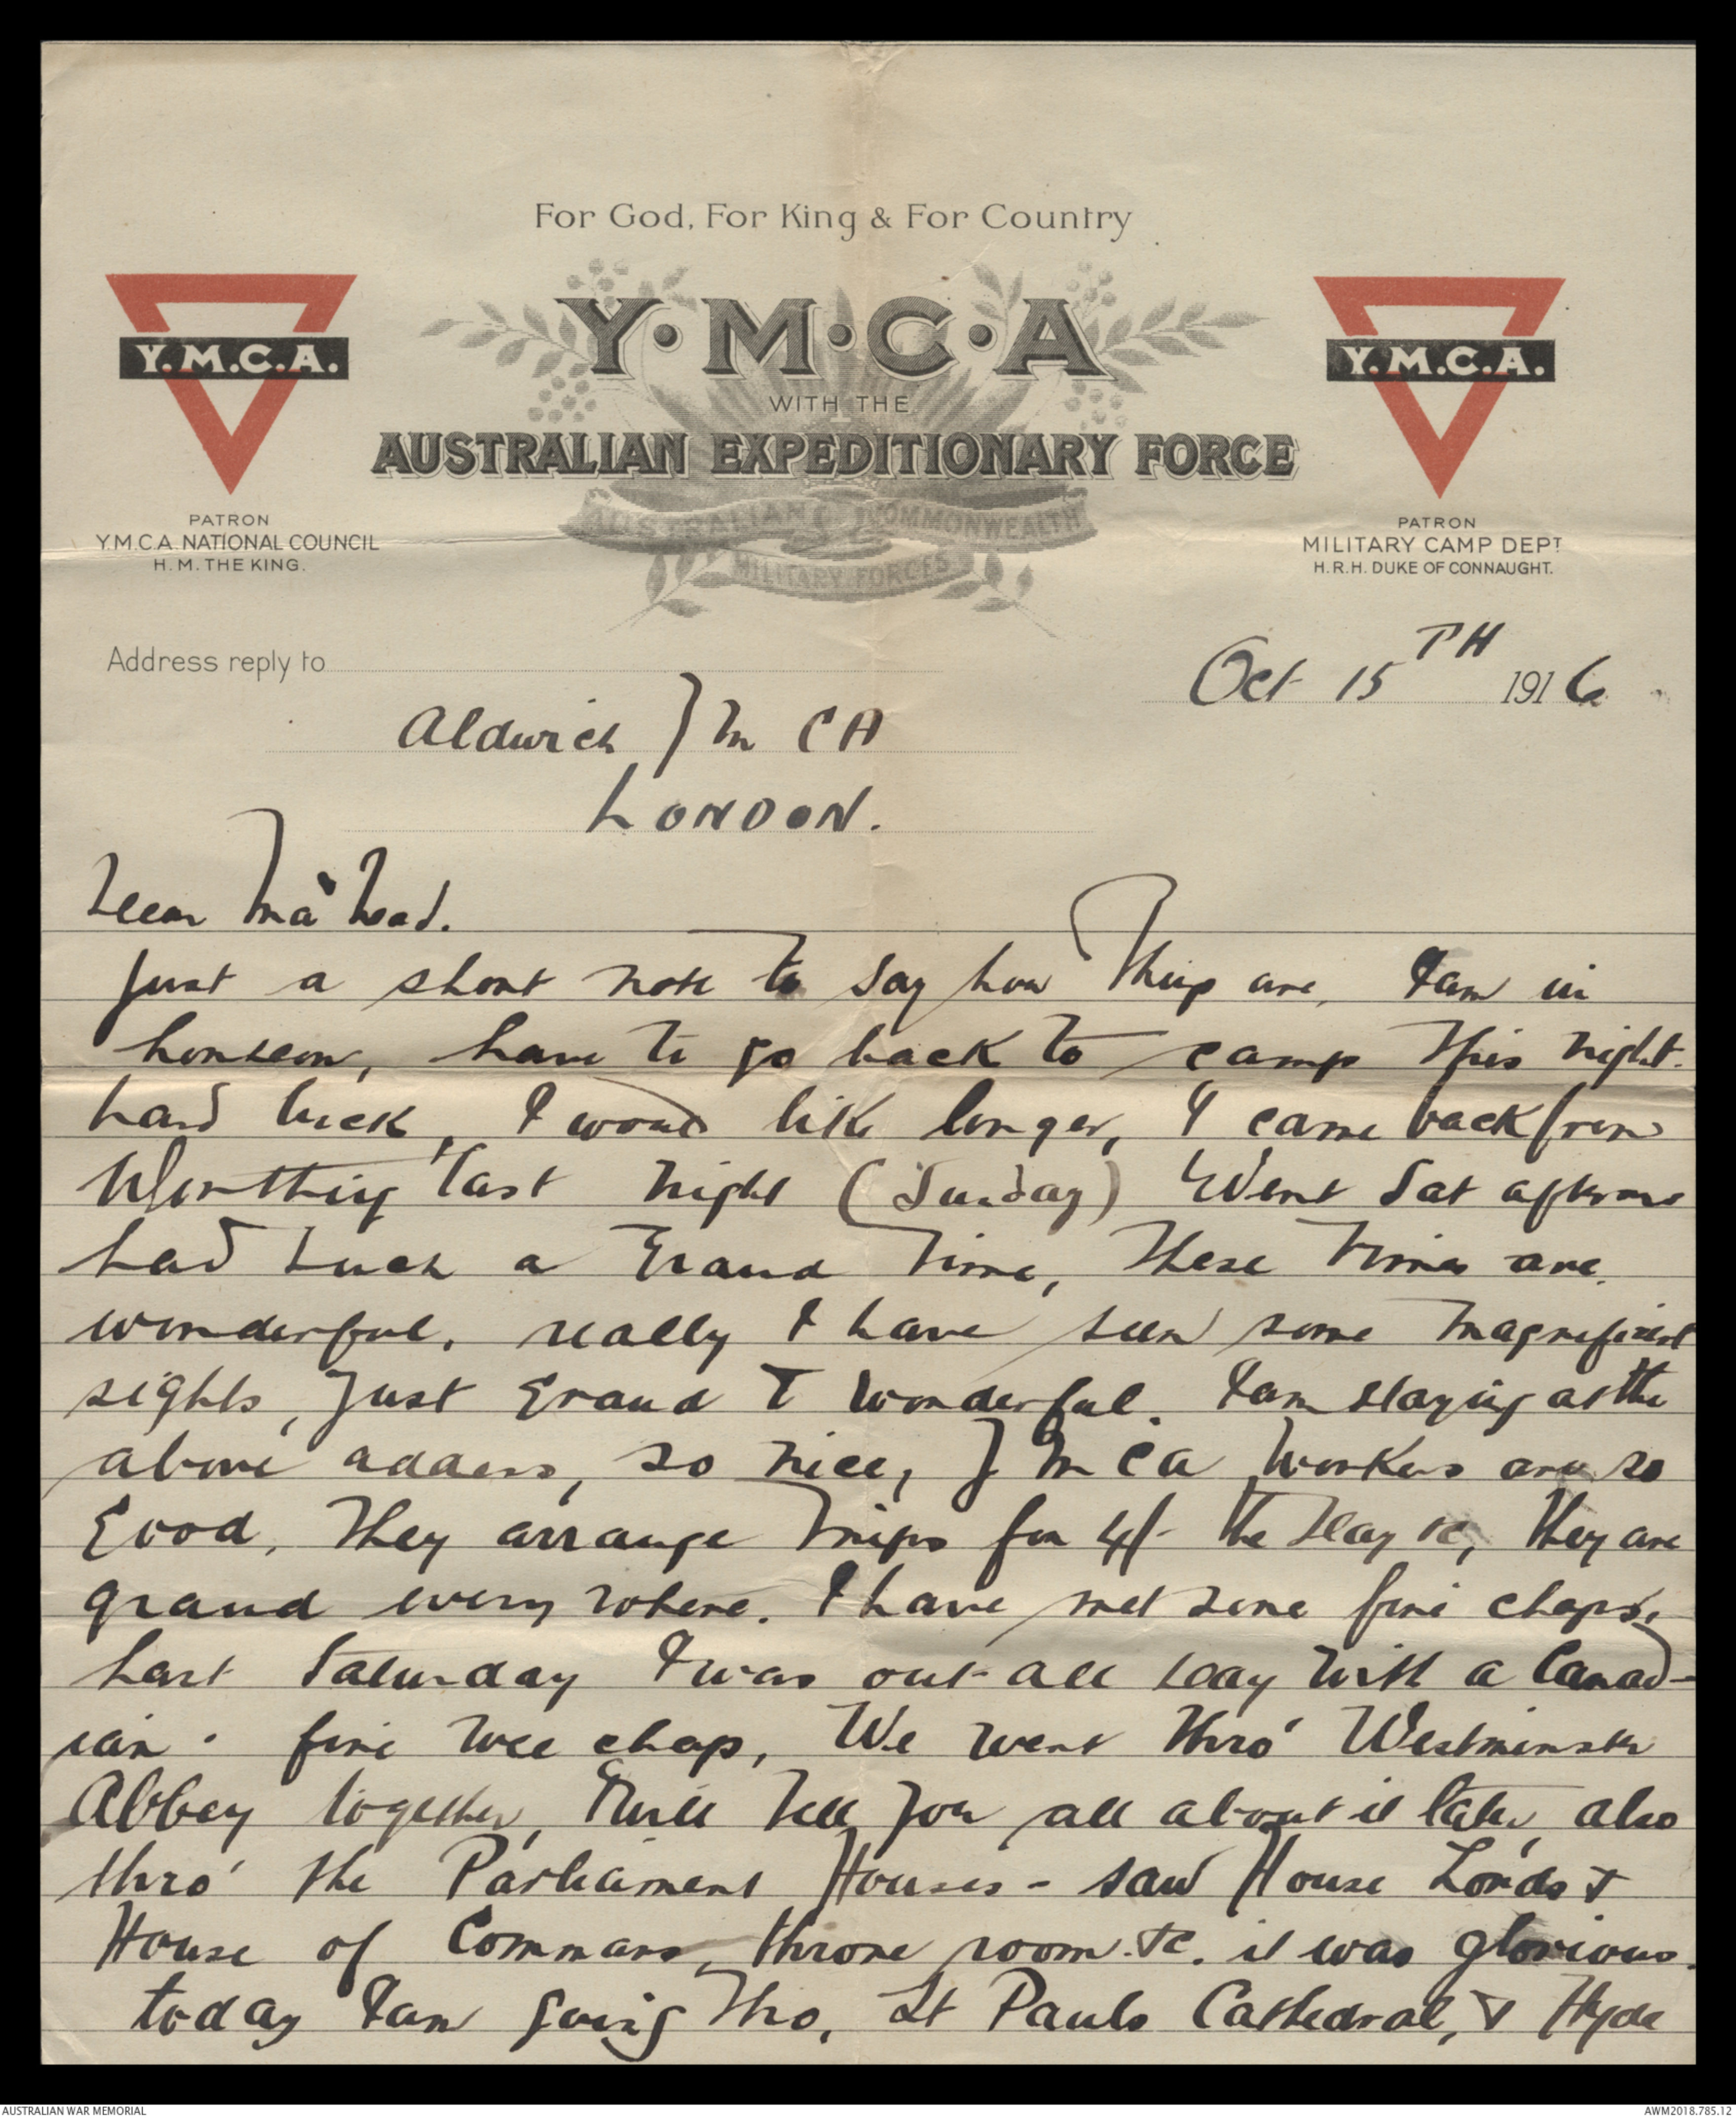 For God, For King & For Country
Y.M.C.A
Y.M.C.A.
Y.M.C.A.
WITH THE
AUSTRALIAN EXPEDITIONARY FORCE
AUSTRALIAN COMMONWEALTH
MILITARY FORCES
PATRON
Y.M.C.A. NATIONAL COUNCIL
H.M. THE KING.
PATRON
MILITARY CAMP DEPT
H.R.H. DUKE OF CONNAUGHT.
Address reply to
Oct 15TH 1916
Aldwich YMCA
LONDON.
Dear Ma & Dad.
Just a short note to say how things are, I am in
London, have to go back to camp this night.
hard luck, I would like longer, I came back from
Worthing last night (Sunday) Went Sat afternoon
had such a Grand time, These times are
wonderful, really I have seen some magnificent
sights, Just Grand & Wonderful. I am staying at the
above address, so nice, YMCA workers are so
Good, They arrange Trips for 4/- the day &c, they are
grand every where. I have met some fine chaps,
Last Saturday I was out all day with a Canad-
ian. fine wee chap, We went thro' Westminster
Abbey together, I will tell you all about it later, also
thro' the Parliament Houses - saw House Lords &
House of Commons, throne room &c. it was glorious.
today I am going Thro, St Pauls Cathedral, & Hyde
AUSTRALIAN WAR MEMORIAL
AWM2018.785.12